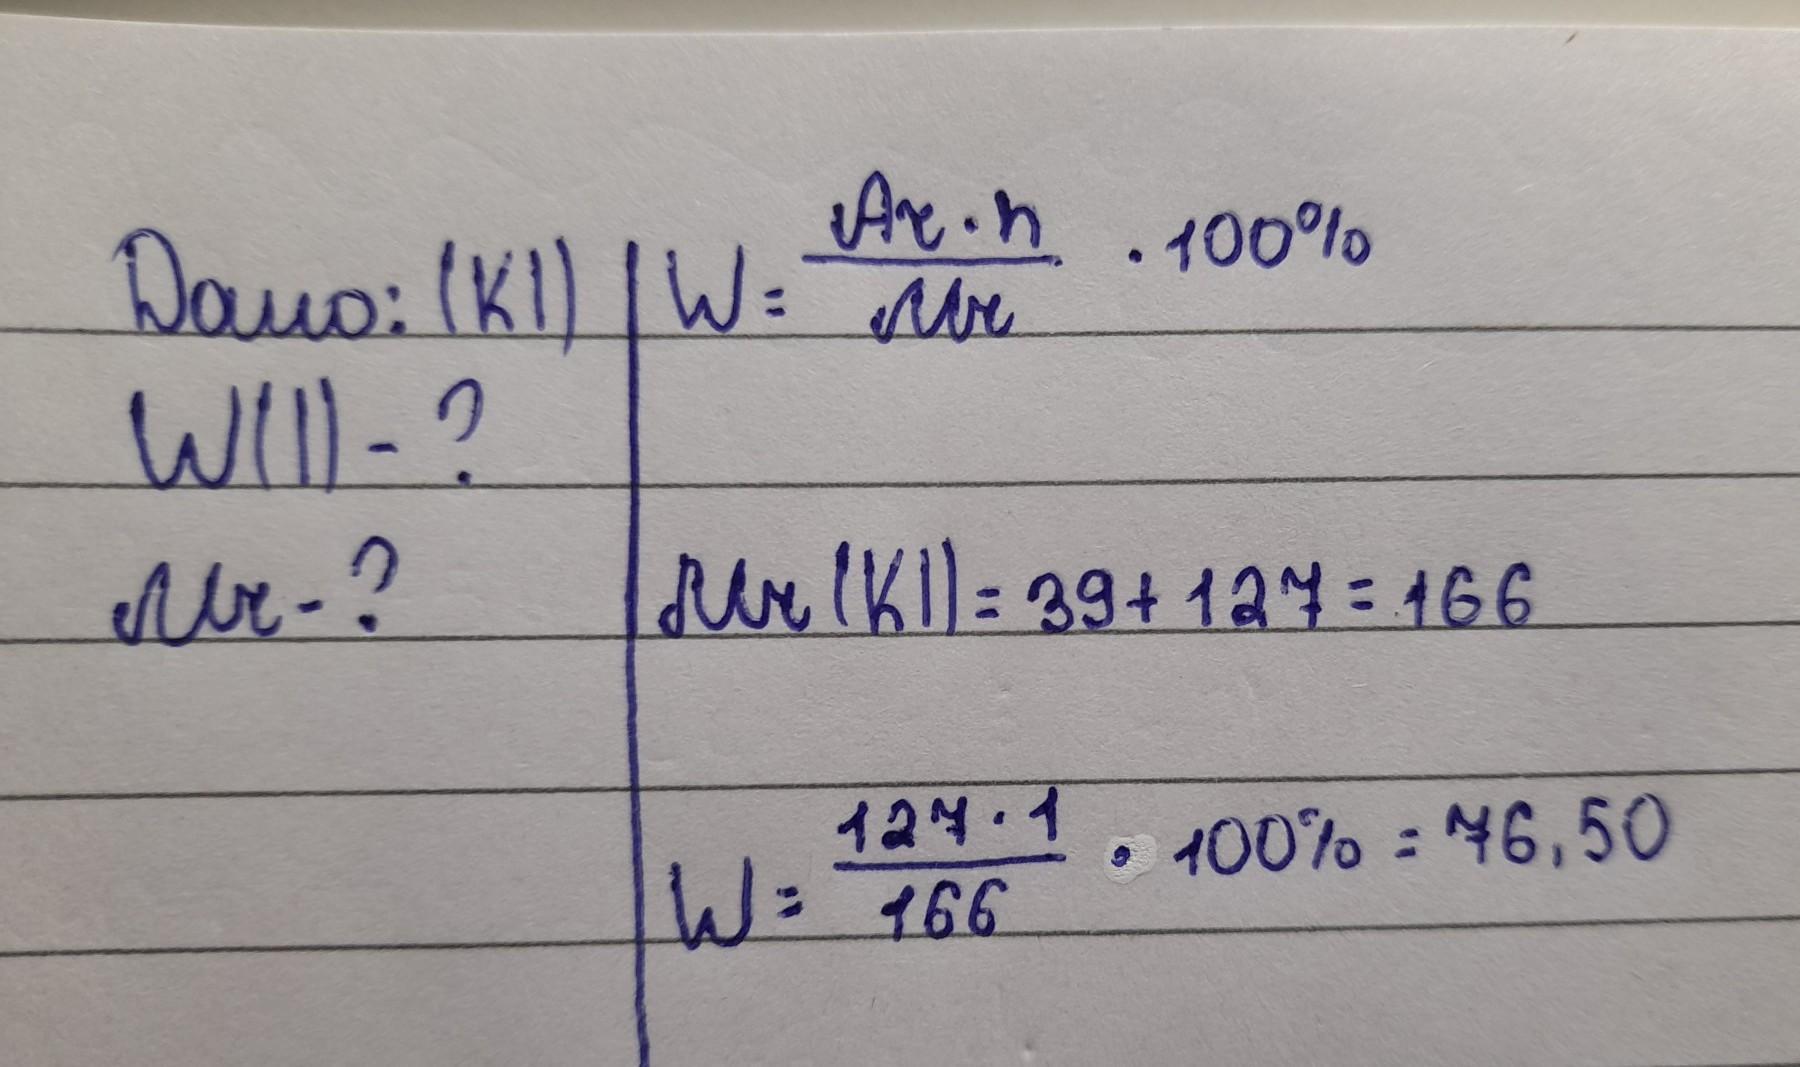 Дано: (KI)
W(I) - ?
Mr - ?
W = Ar · n / Mr · 100%
Mr (KI) = 39 + 127 = 166
W = 127 · 1 / 166 · 100% = 76,50